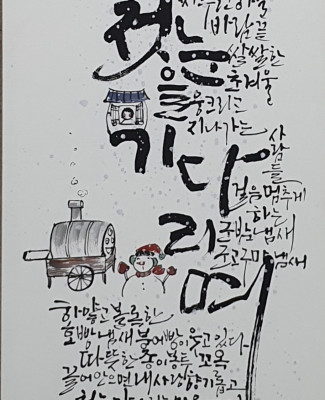 첫눈을
기다리며
바람끝
쌀쌀한
초겨울
웅크리고
지나가는
사람들
걸음 멈추게
하는
군밤냄새
군고구마 냄새
하얗고 볼록한
호빵냄새 붕어빵이 웃고 있다
따뜻한 종이봉투 꼬옥
끌어안으면 내 사랑 향기롭고